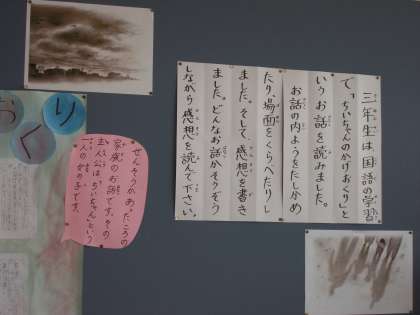 三年生は国語の学習
で、「ちいちゃんのかげおくり」と
いうお話を読みました。
お話の内ようをたしかめ
たり、場面をくらべたりし
ました。そして、感想を書き
ました。どんなお話かそうぞう
しながら感想を読んで下さい。
おくり
せんそうがあったころの
家族のお話です。その
主人公は、「ちいちゃん」という
一人の女の子です。